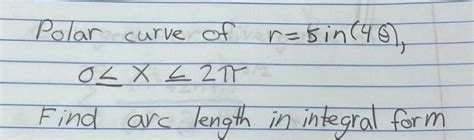 Polar curve of r=sin(4θ),
0≤ X ≤ 2π
Find arc length in integral form